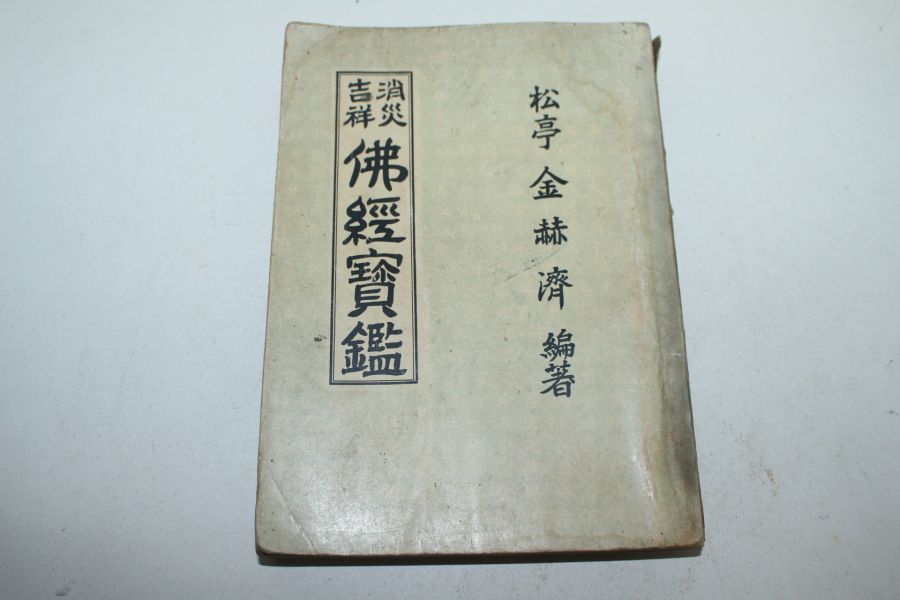 松亭 金赫濟 編著
消災
吉祥
佛經寶鑑